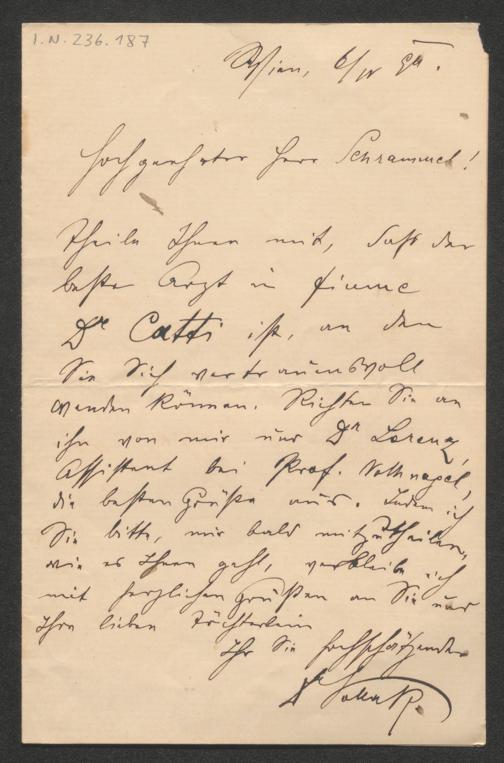 I.N. 236.187
Wien, 6/IV 92.
Hochgeehrter Herr Schrammel!
Theile Ihnen mit, daß der
beste Arzt in Fiume
Dr Catti ist, an den
Sie Sich vertrauensvoll
wenden können. Richten Sie an
ihn von mir und Dr Lorenz,
Assistent bei Prof. Nothnagel,
die besten Grüße aus. Indem ich
Sie bitte, mir bald mitzutheilen,
wie es Ihnen geht, verbleibe ich
mit herzlichen Grüßen an Sie und
Ihre lieben Töchterlein
Ihr Sie hochschätzender
Dr